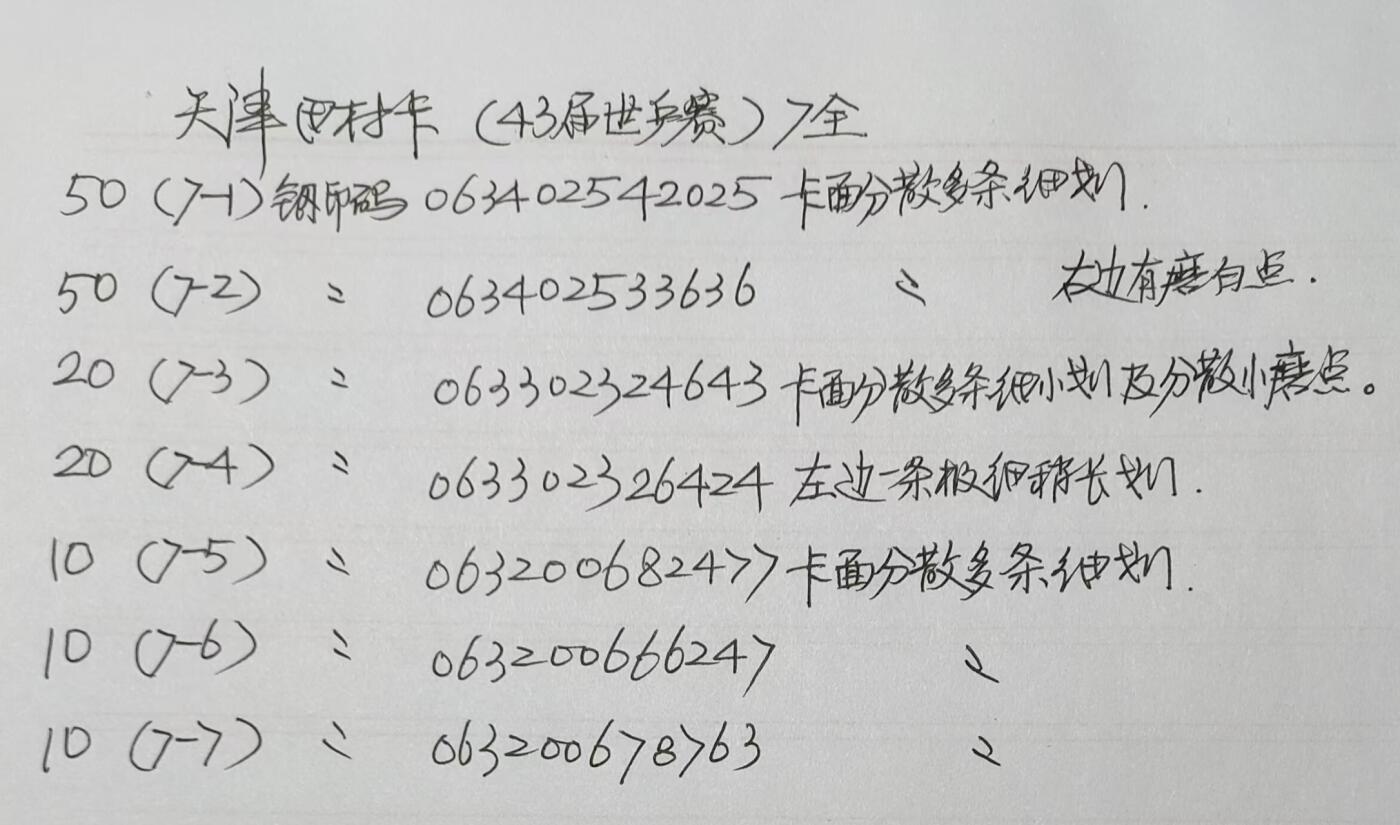 天津田村卡 (43届世乒赛) 7全
50 (7-1) 钢印码 063402542025 卡面分散多条细划.
50 (7-2) 〃 063402533636 〃 右边有磨白点.
20 (7-3) 〃 063302324643 卡面分散多条细小划及分散小磨点。
20 (7-4) 〃 063302326424 左边一条极细稍长划.
10 (7-5) 〃 063200682477 卡面分散多条细划.
10 (7-6) 〃 063200666247 〃
10 (7-7) 〃 063200678763 〃